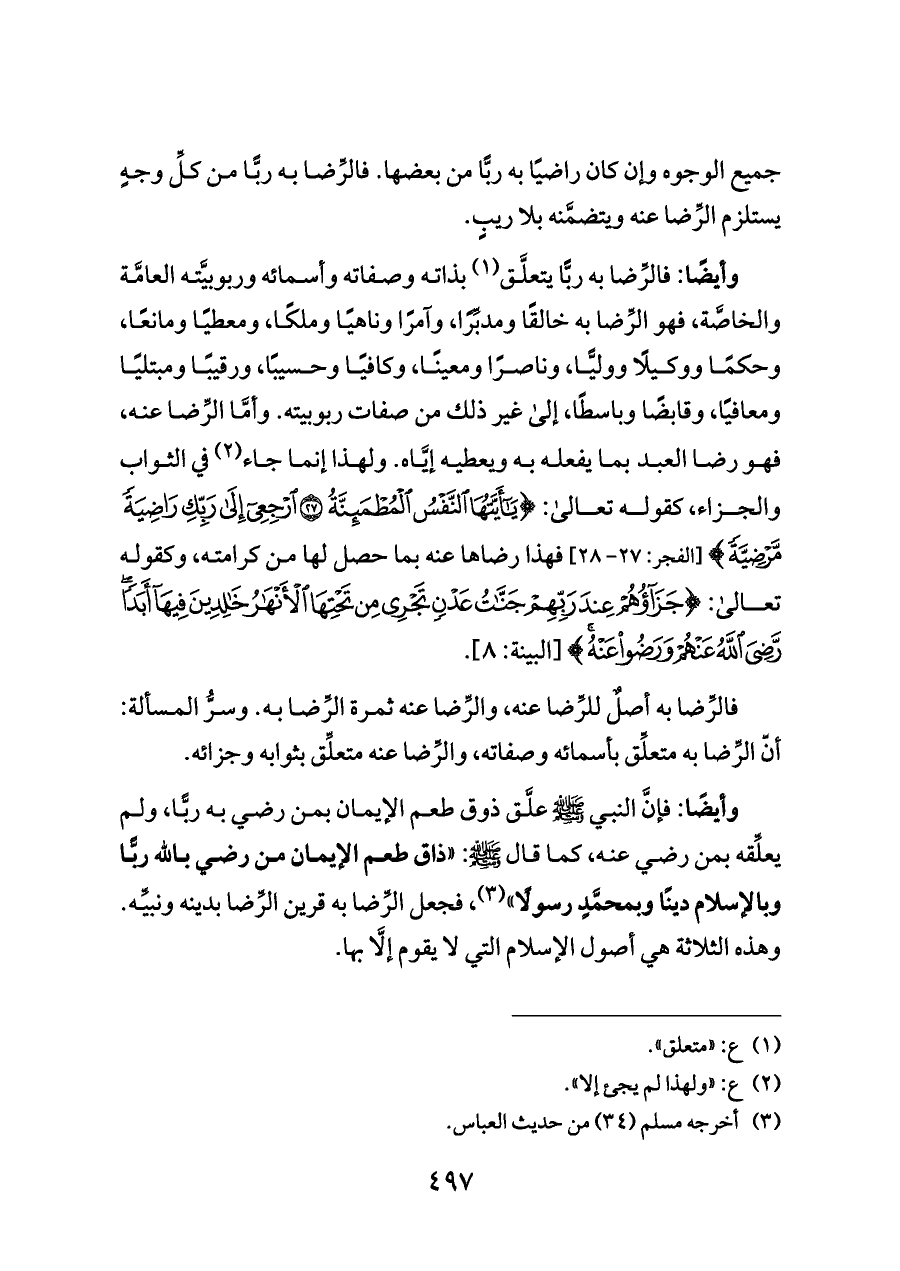 جميع الوجوه وإن كان راضيًا به ربًّا من بعضها. فالرِّضا به ربًّا من كلِّ وجهٍ
يستلزم الرِّضا عنه ويتضمَّنه بلا ريبٍ.
وأيضًا: فالرِّضا به ربًّا يتعلَّق(١) بذاته وصفاته وأسمائه وربوبيَّته العامَّة
والخاصَّة، فهو الرِّضا به خالقًا ومدبِّرًا، وآمرًا وناهيًا وملكًا، ومعطيًا ومانعًا،
وحكمًا ووكيلًا ووليًّا، وناصرًا ومعينًا، وكافيًا وحسيبًا، ورقيبًا ومبتليًا
ومعافيًا، وقابضًا وباسطًا، إلىٰ غير ذلك من صفات ربوبيته. وأمَّا الرِّضا عنه،
فهو رضا العبد بما يفعله به ويعطيه إيَّاه. ولهذا إنما جاء(٢) في الثواب
والجزاء، كقوله تعالىٰ: ﴿يَٰٓأَيَّتُهَا ٱلنَّفۡسُ ٱلۡمُطۡمَئِنَّةُ ٢٧ ٱرۡجِعِيٓ إِلَىٰ رَبِّكِ رَاضِيَةٗ
مَّرۡضِيَّةٗ﴾ [الفجر: ٢٧ - ٢٨] فهذا رضاها عنه بما حصل لها من كرامته، وكقوله
تعالىٰ: ﴿جَزَآؤُهُمۡ عِندَ رَبِّهِمۡ جَنَّٰتُ عَدۡنٖ تَجۡرِي مِن تَحۡتِهَا ٱلۡأَنۡهَٰرُ خَٰلِدِينَ فِيهَآ أَبَدٗاۖ
رَّضِيَ ٱللَّهُ عَنۡهُمۡ وَرَضُواْ عَنۡهُۚ﴾ [البينة: ٨].
فالرِّضا به أصلٌ للرِّضا عنه، والرِّضا عنه ثمرة الرِّضا به. وسرُّ المسألة:
أنّ الرِّضا به متعلِّق بأسمائه وصفاته، والرِّضا عنه متعلِّق بثوابه وجزائه.
وأيضًا: فإنَّ النبي ﷺ علَّق ذوق طعم الإيمان بمن رضي به ربًّا، ولم
يعلِّقه بمن رضي عنه، كما قال ﷺ: «ذاق طعم الإيمان من رضي بالله ربًّا
وبالإسلام دينًا وبمحمَّدٍ رسولًا»(٣)، فجعل الرِّضا به قرين الرِّضا بدينه ونبيِّه.
وهذه الثلاثة هي أصول الإسلام التي لا يقوم إلَّا بها.
(١) ع: «متعلق».
(٢) ع: «ولهذا لم يجئ إلا».
(٣) أخرجه مسلم (٣٤) من حديث العباس.
٤٩٧